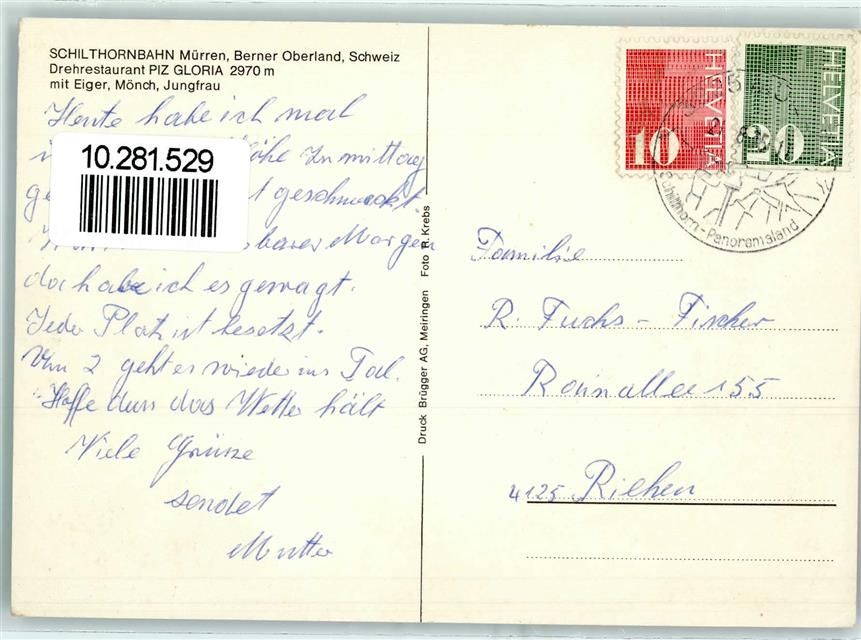 SCHILTHORNBAHN Mürren, Berner Oberland, Schweiz
Drehrestaurant PIZ GLORIA 2970 m
mit Eiger, Mönch, Jungfrau
Heute habe ich mal
Höhe zu mittag
geschmeckt
Morgen
doch habe ich es gewagt.
Jeder Platz ist besetzt.
Um 2 geht es wieder ins Tal.
Hoffe dass das Wetter hält
Viele Grüsse
sendet
Mutter
10.281.529
Druck Brügger AG, Meiringen Foto R. Krebs
HELVETIA
10
HELVETIA
Schilthorn-Panoramaland
Familie
R. Fuchs - Fischer
Rainallee 155
4125 Riehen